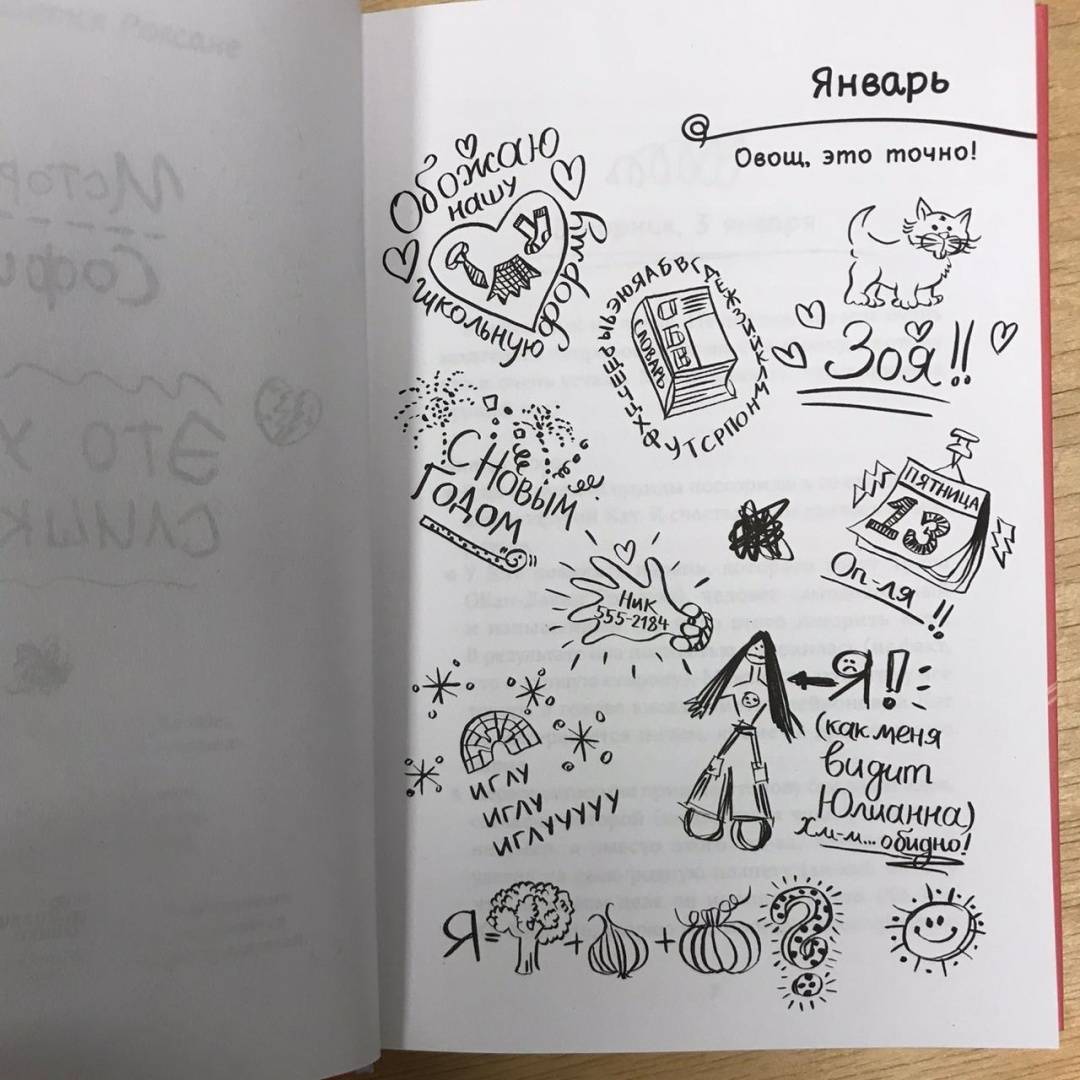 Январь
Овощ, это точно!
Обожаю
нашу
школьную
форму
АБВГДЕЖЗИЙКЛМНОПРСТУФХЦ
АБВ
СЛОВАРЬ
Зоя!!
С НОВЫМ
ГОДОМ
ПЯТНИЦА
13
Оп-ля!!
Ник
555-2184
Я!!
(как меня
видит
Юлианна)
Хм-м... обидно!
ИГЛУ
ИГЛУ
ИГЛУУУУУ
Я= + + ?